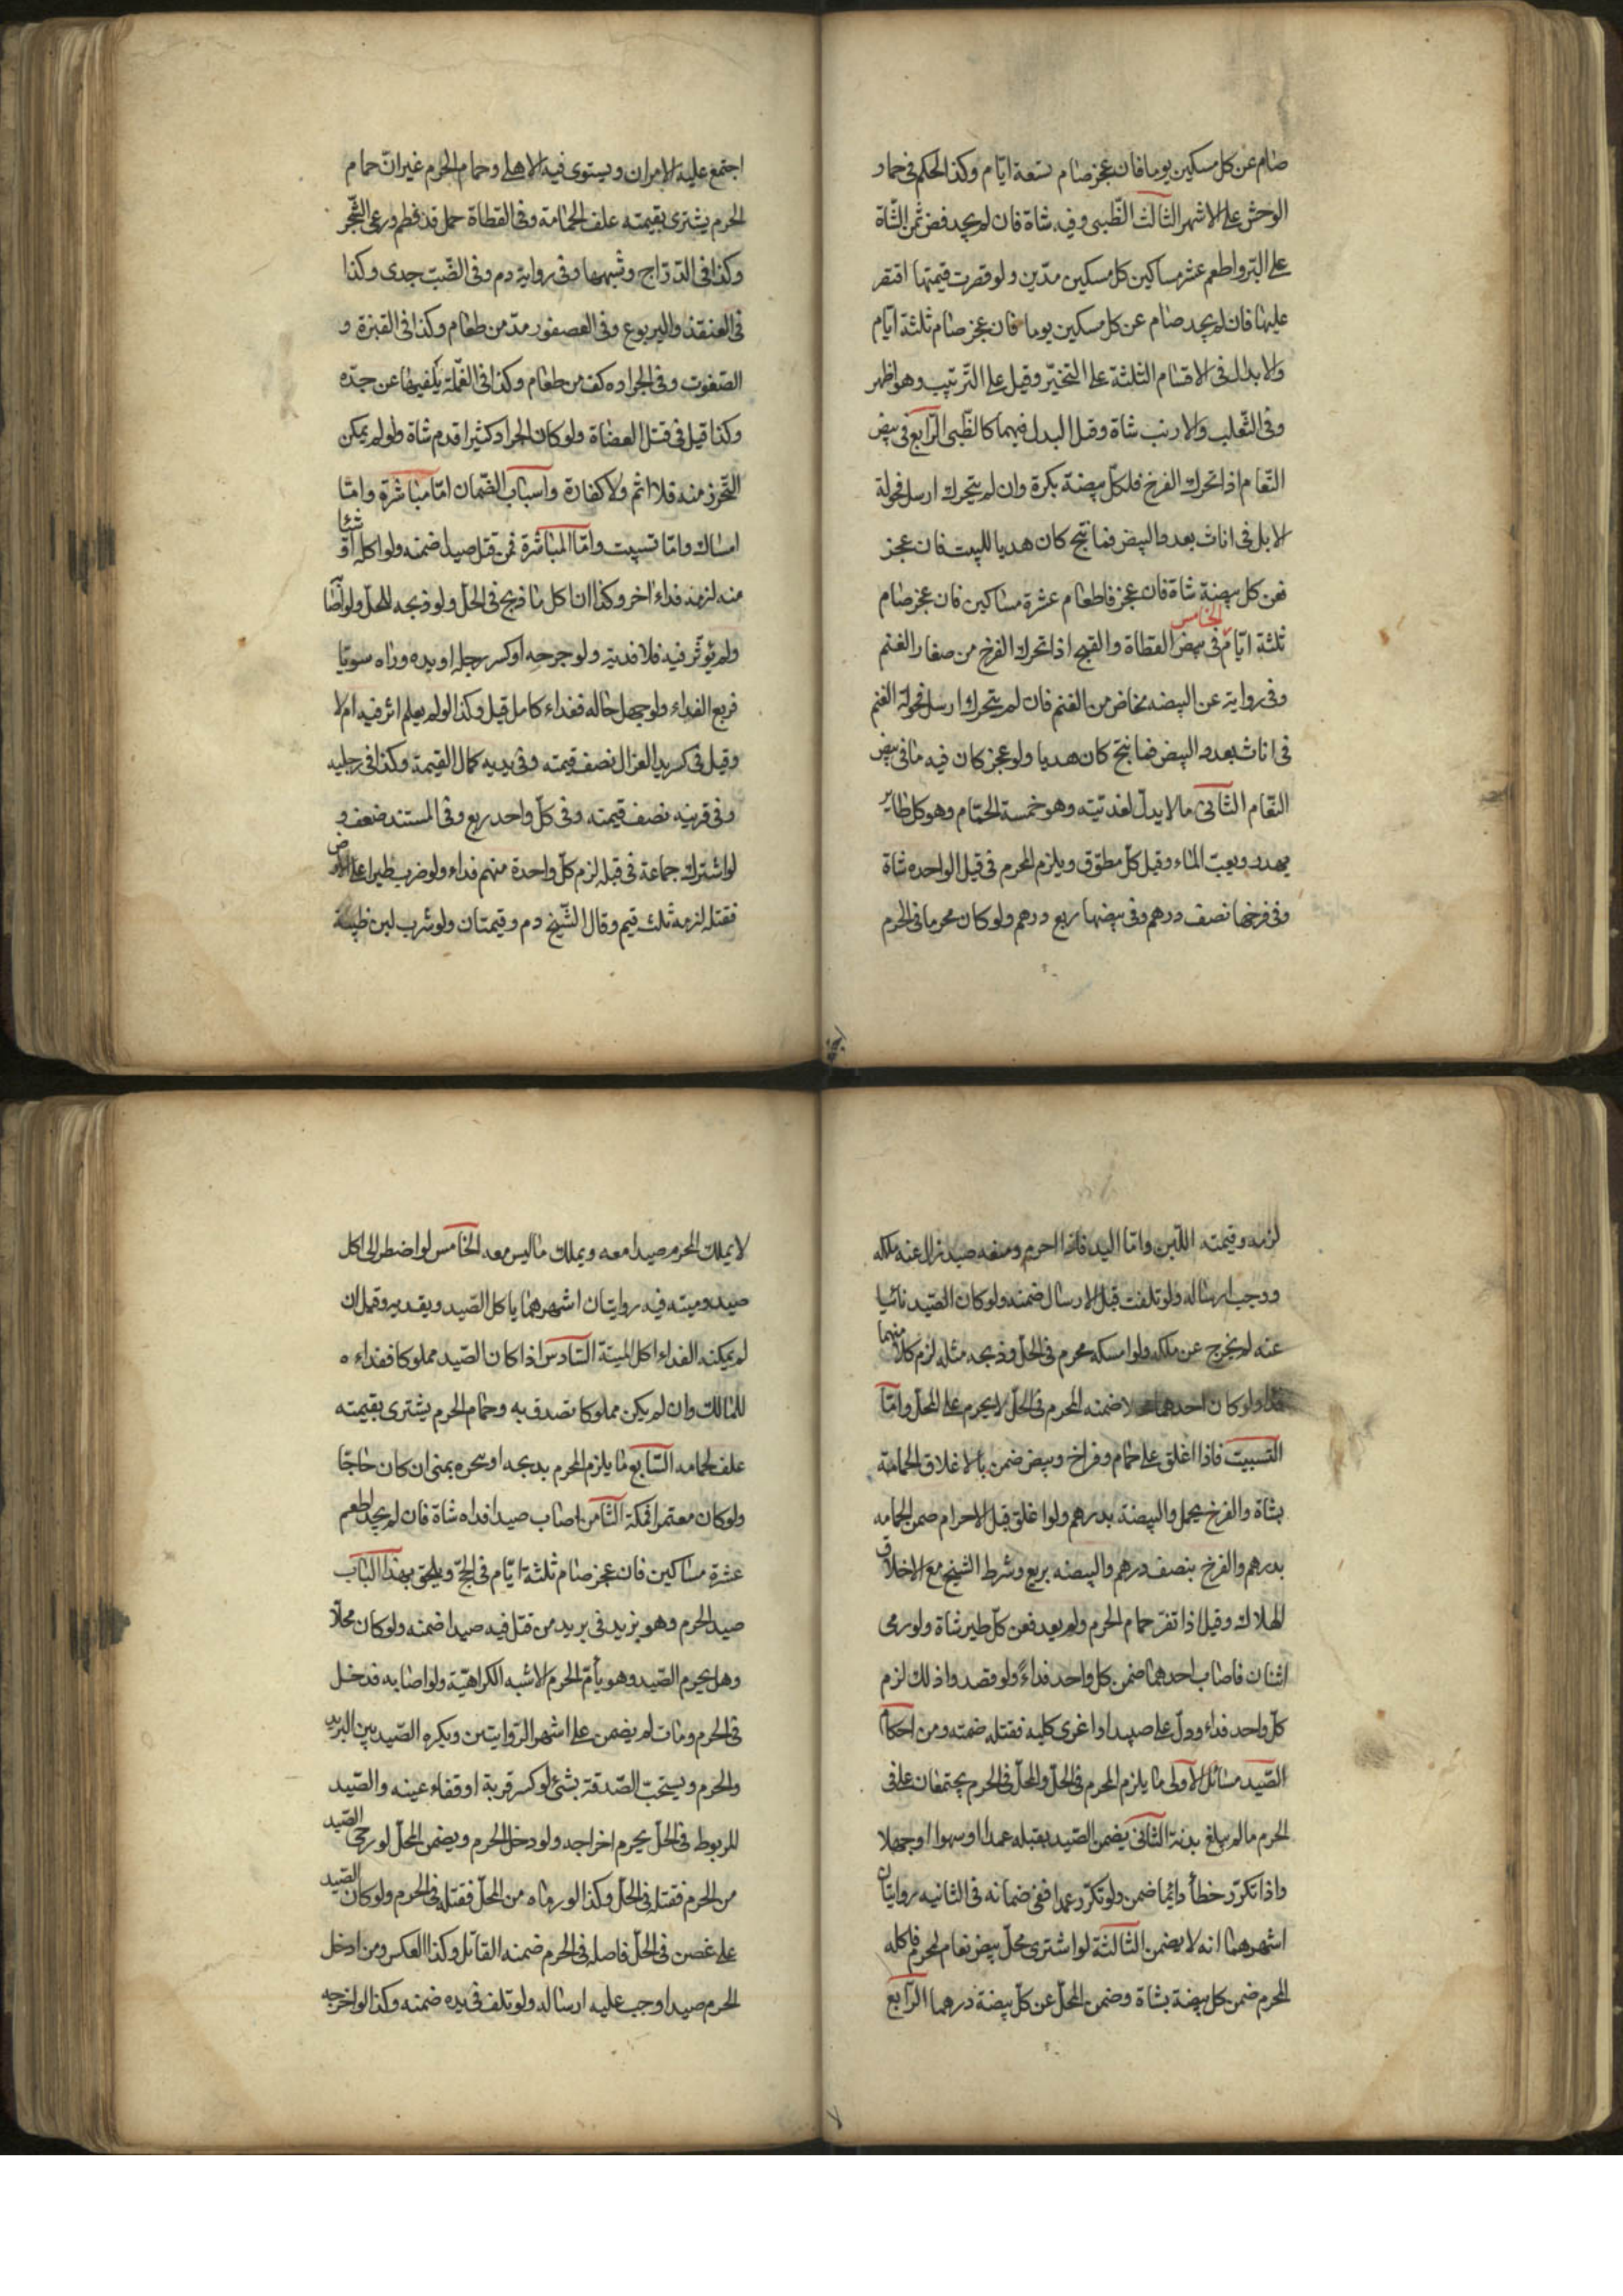 صام عن كل مسكين يوما فان عجز صام تسعة ايام وكذا الحكم فى حمار
الوحش على الاشهر الثالث الظبى وفيه شاة فان لم يجد فض ثمن الشاة
على البر واطعم عشر مساكين كل مسكين مدين ولو قصرت قيمتها اقتصر
عليها فان لم يجد صام عن كل مسكين يوما فان عجز صام ثلثة ايام
والابدال فى الاقسام الثلثة على التخيير وقيل على الترتيب وهو اظهر
وفى الثعلب والارنب شاة وقيل البدل فيهما كالظبى الرابع فى بيض
النعام اذا تحرك الفرخ فلكل بيضة بكرة وان لم يتحرك ارسل فحولة
الابل فى اناث بعدد البيض فما نتج كان هديا للبيت فان عجز
فعن كل بيضة شاة فان عجز فاطعام عشرة مساكين فان عجز صام
ثلثة ايام الخامس فى بيض القطاة والقبج اذا تحرك الفرخ من صغار الغنم
وفى رواية عن البيضه مخاض من الغنم فان لم يتحرك ارسل فحولة الغنم
فى اناث بعدد البيض فما نتج كان هديا ولو عجز كان فيه ما فى بيض
النعام الثانى ما لا بدل لفديته وهو خمسة الحمام وهو كل طاير
يهدر ويعب الماء وقيل كل مطوق ويلزم المحرم فى قتل الواحده شاة
وفى فرخها نصف درهم وفى بيضها ربع درهم ولو كان محرما فى الحرم
اجتمع عليه الامران ويستوى فيه الاهلى وحمام الحرم غير ان حمام
الحرم يشترى بقيمته علف الحمامة وفى القطاة حمل قد فطم ورعى الشجر
وكذا فى الدراج وشبهها وفى رواية دم وفى الضب جدى وكذا
فى القنفذ واليربوع وفى العصفور مد من طعام وكذا فى القبرة و
الصعوت وفى الجراده كف من طعام وكذا فى القملة يلقيها عن جسده
وكذا قيل فى قتل العضاة ولو كان الجراد كثيرا فدم شاة ولو لم يمكن
التحرز منه فلا اثم ولا كفارة واسباب الضمان اما مباشرة واما
امساك واما تسبيب واما المباشرة فمن قتل صيدا ضمنه ولو اكله او شيئا
منه لزمه فداء اخر وكذا ان اكل ما ذبح فى الحل ولو ذبحه المحل ولو اصاب
ولم يؤثر فيه فلا فدية ولو جرحه او كسر رجله او يده وراه سويا
فربع الفداء ولو جهل حاله ففداء كامل قيل وكذا لو لم يعلم اثر فيه ام لا
وقيل فى كسر يد الغزال نصف قيمته وفى يديه كمال القيمة وكذا فى رجليه
وفى قرنيه نصف قيمته وفى كل واحد ربع وفى المستند ضعف و
لو اشترك جماعة فى قتله لزم كل واحدة منهم فداء ولو ضرب طيرا على الارض
فقتله لزمه ثلث قيم وقال الشيخ دم وقيمتان ولو شرب لبن ظبية
لزمه وقيمته اللبن واما اليد فاذا احرم ومعه صيد زال عنه ملكه
ووجب ارساله ولو تلفت قبل الارسال ضمنه ولو كان الصيد نائيا
عنه لم يخرج عن ملكه ولو امسكه محرم فى الحل وذبحه مثله لزم كلا منهما
فداء ولو كان احدهما محلا ضمنه المحرم فى الحل لا يحرم على المحل واما
التسبيب فاذا اغلق على حمام وفراخ وبيض ضمن بالاغلاق الحمامة
بشاة والفرخ بحمل والبيضة بدرهم ولو اغلق قبل الاحرام ضمن الحمامه
بدرهم والفرخ بنصف درهم والبيضه بربع وشرط الشيخ مع الاغلاق
الهلاك وقيل اذا نفر حمام الحرم ولم يعد فعن كل طير شاة ولو رمى
اثنان فاصاب احدهما ضمن كل واحد فداء ولو قصدوا ذلك لزم
كل واحد فداء ودل على صيد او اغرى كلبه فقتله ضمنه ومن احكام
الصيد مسائل الاولى ما يلزم المحرم فى الحل والمحل فى الحرم يجتمعان على فى
الحرم ما لم يبلغ بدنة الثانى يضمن الصيد بقتله عمدا او سهوا او جهلا
واذا تكرر خطأ دائما ضمن ولو تكرر عمدا ففى ضمانه فى الثانيه روايتان
اشهرهما انه لا يضمن الثالثة لو اشترى محل بيض نعام لمحرم فاكله
المحرم ضمن كل بيضة بشاة وضمن المحل عن كل بيضة درهما الرابع
لا يملك المحرم صيدا معه ويملك ما ليس معه الخامس لو اضطر الى اكل
صيد وميته فيه روايتان اشهرهما ياكل الصيد ويفديه وقيل ان
لم يمكنه الفداء اكل الميتة السادس اذا كان الصيد مملوكا ففداءه
للمالك وان لم يكن مملوكا تصدق به وحمام الحرم يشترى بقيمته
علف لحمامه السابع ما يلزم المحرم يذبحه او ينحره بمنى ان كان حاجا
ولو كان معتمرا فبمكة الثامن اصاب صيدا فداه شاة فان لم يجد اطعم
عشرة مساكين فان عجز صام ثلثة ايام فى الحج ويلحق بهذا الباب
صيد الحرم وهو بريد فى بريد من قتل فيه صيدا ضمنه ولو كان محلا
وهل يحرم الصيد وهو يأم الحرم الاشبه الكراهية ولو اصابه فدخل
فى الحرم ومات لم يضمن على اشهر الروايتين ويكره الصيد بين البريد
والحرم ويستحب الصدقة بشئ لو كسر قرنة او فقاء عينه والصيد
المربوط فى الحل يحرم اخراجه ولو دخل الحرم ويضمن المحل لو رمى الصيد
من الحرم فقتله فى الحل وكذا لو رماه من المحل فقتله فى الحرم ولو كان الصيد
على غصن فى الحل فاصله فى الحرم ضمنه القاتل وكذا العكس ومن ادخل
الحرم صيدا وجب عليه ارساله ولو تلف فى يده ضمنه وكذا لو اخرجه